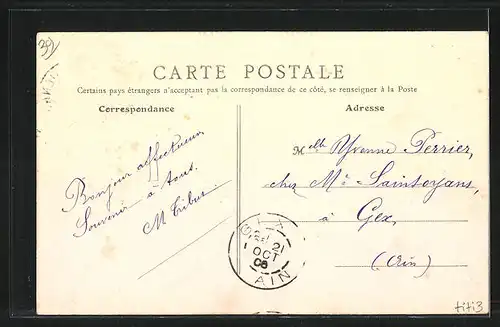 39
CARTE POSTALE
Certains pays étrangers n'acceptant pas la correspondance de ce côté, se renseigner à la Poste
Correspondance
Adresse
Bonjour affectueux
Souvenir à tous.
M
Melle Yvonne Perrier,
chez Mr Saintoyans,
à Gex,
(Ain)
21
1 OCT
06
AIN
titi3